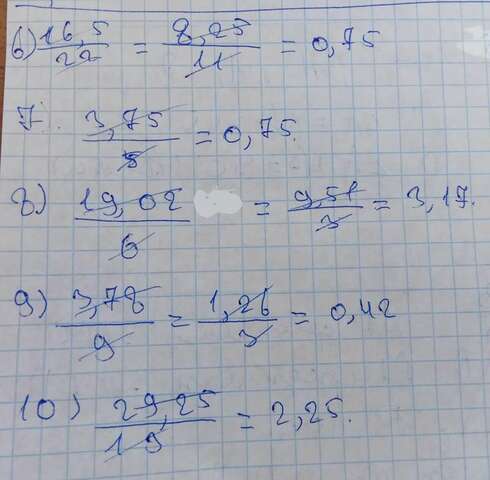 6) 16,5/22 = 8,25/11 = 0,75
7. 3,75/5 = 0,75.
8) 19,02/6 = 9,51/3 = 3,17.
9) 3,78/9 = 1,26/3 = 0,42
10) 29,25/13 = 2,25.